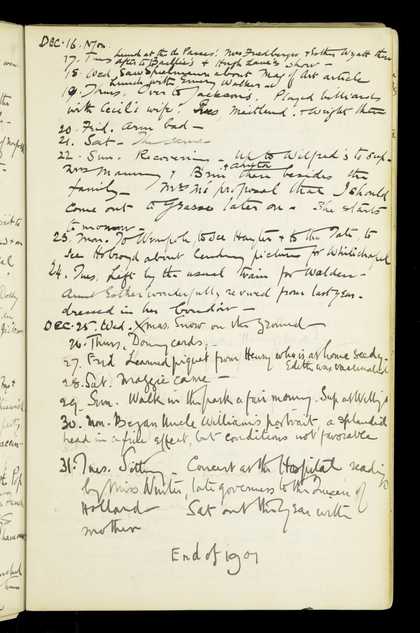 DEC. 16. Mon.
17. Tues Lunch at the de Passes'. Mrs Fredberger & Esther Wyatt there
after to Baillie's & Hugh Lane's show -
18. Wed. Saw Spielmann about Mag of Art article
Lunch with Emery Walker at
19. Thurs. Over to Jackson's. Played billiards
with Cecil's wife. Maitland. Wright there
20. Frid. Arm bad -
21. Sat - The same
22. Sun. Recovering - We to Wilfrid's to sup-
Mrs Manning & Brin there besides the
family - Mrs M's proposal that I should
come out to Grasse later on - She starts
tomorrow -
23. Mon. To Wimpole to see Hunter & to the Tate to
see Holroyd about Century pictures for Whitechapel
24. Tues. Left by the usual train for Walden -
Aunt Esther wonderfully revived from last year -
dressed in her boudoir -
DEC. 25. Wed. Xmas. Snow on the ground
26. Thurs. Doing cards.
27. Frid Learned piquet from Henry who is at home seedy.
Edith was vaccinated
28. Sat. Maggie came -
29. Sun. Walk in the park a fair morning. Sup at Willy's
30. Mon. Began Uncle William's portrait, a splendid
head in a full effect, but conditions not favorable
31. Tues. Sitting - Concert at the Hospital reading
by Miss Winter, late governess to the Queen of
Holland Sat out the year with
mother
End of 1901